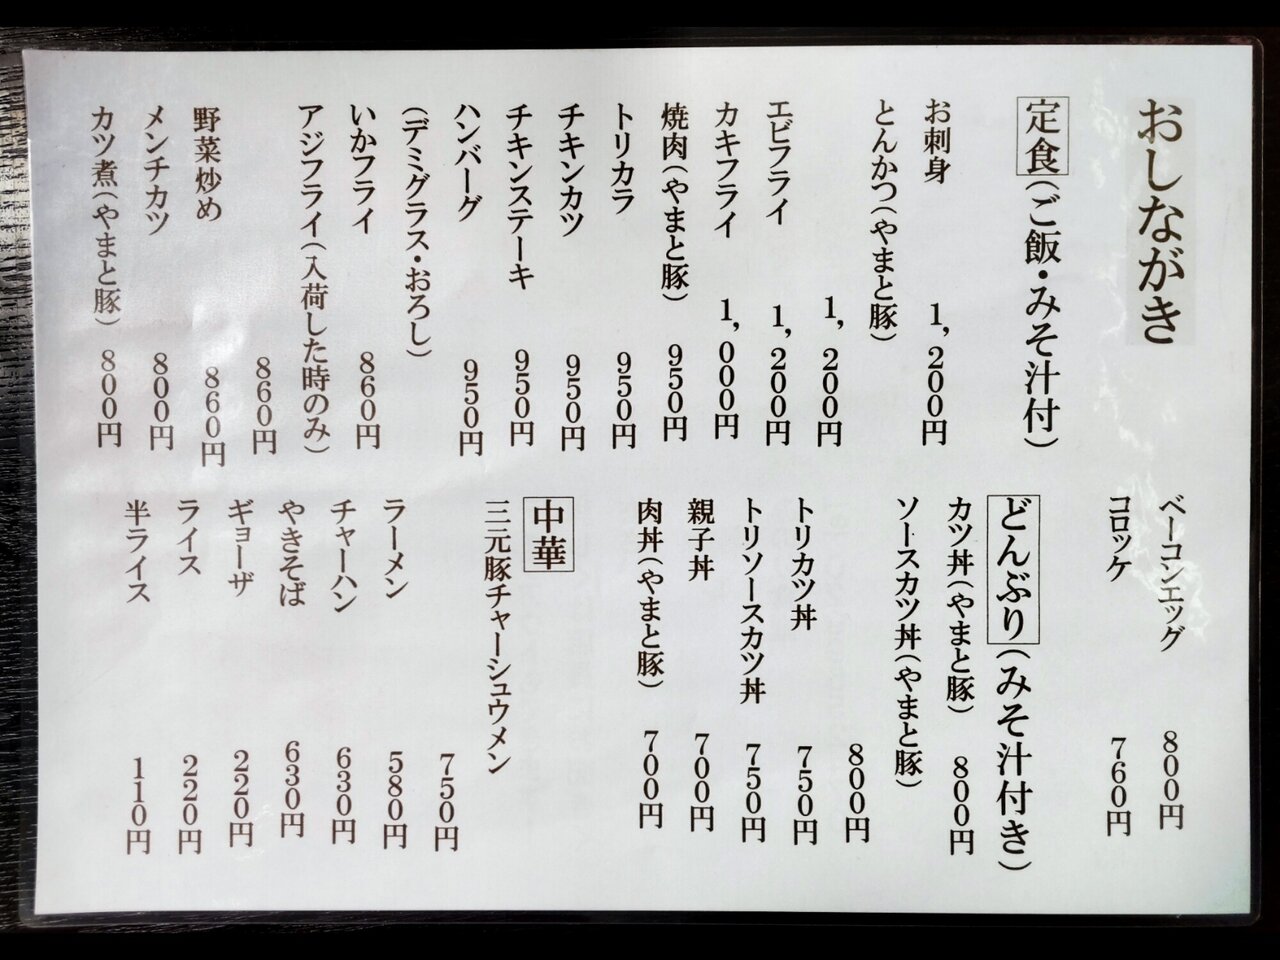 おしながき
定食(ご飯・みそ汁付)
お刺身 1,200円
とんかつ(やまと豚)
1,200円
エビフライ 1,200円
カキフライ 1,000円
焼肉(やまと豚) 950円
トリカラ 950円
チキンカツ 950円
チキンステーキ 950円
ハンバーグ 950円
(デミグラス・おろし)
いかフライ 860円
アジフライ(入荷した時のみ)
860円
野菜炒め 860円
メンチカツ 800円
カツ煮(やまと豚) 800円
ベーコンエッグ 800円
コロッケ 760円
どんぶり(みそ汁付き)
カツ丼(やまと豚) 800円
ソースカツ丼(やまと豚)
800円
トリカツ丼 750円
トリソースカツ丼 750円
親子丼 700円
肉丼(やまと豚) 700円
中華
三元豚チャーシュウメン
750円
ラーメン 580円
チャーハン 630円
やきそば 630円
ギョーザ 220円
ライス 220円
半ライス 110円